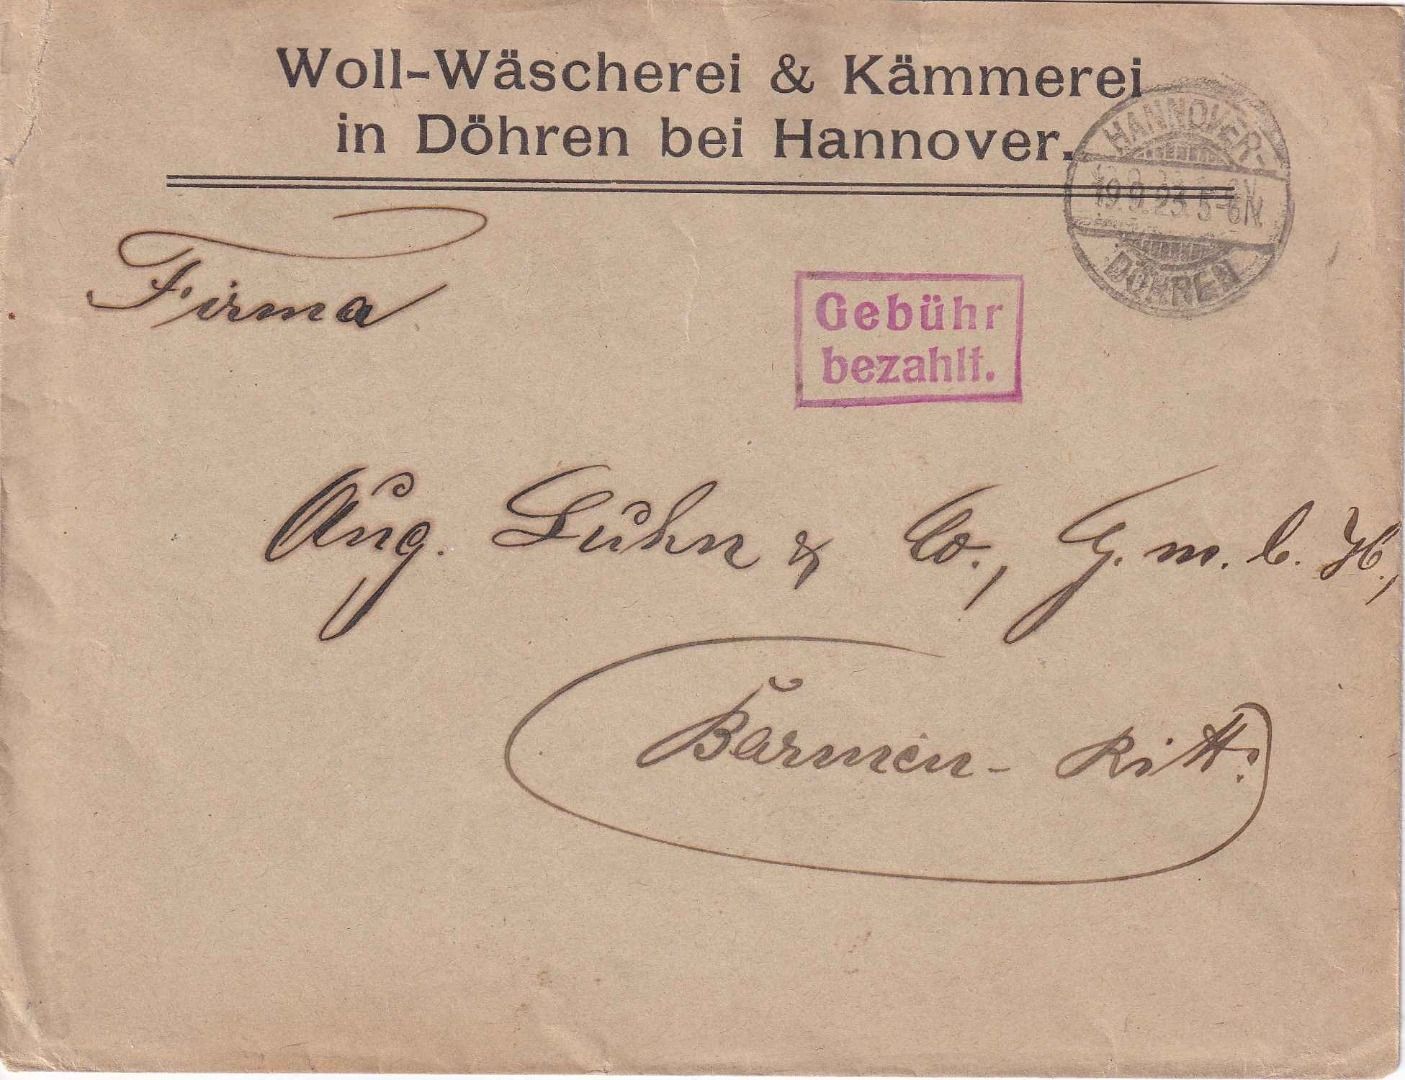 Woll-Wäscherei & Kämmerei
in Döhren bei Hannover.
HANNOVER-
19.9.23. 5-6N.
DÖHREN
Firma
Gebühr
bezahlt.
Aug. Luhn & Co., G. m. b. H.,
Barmen - Ritt.